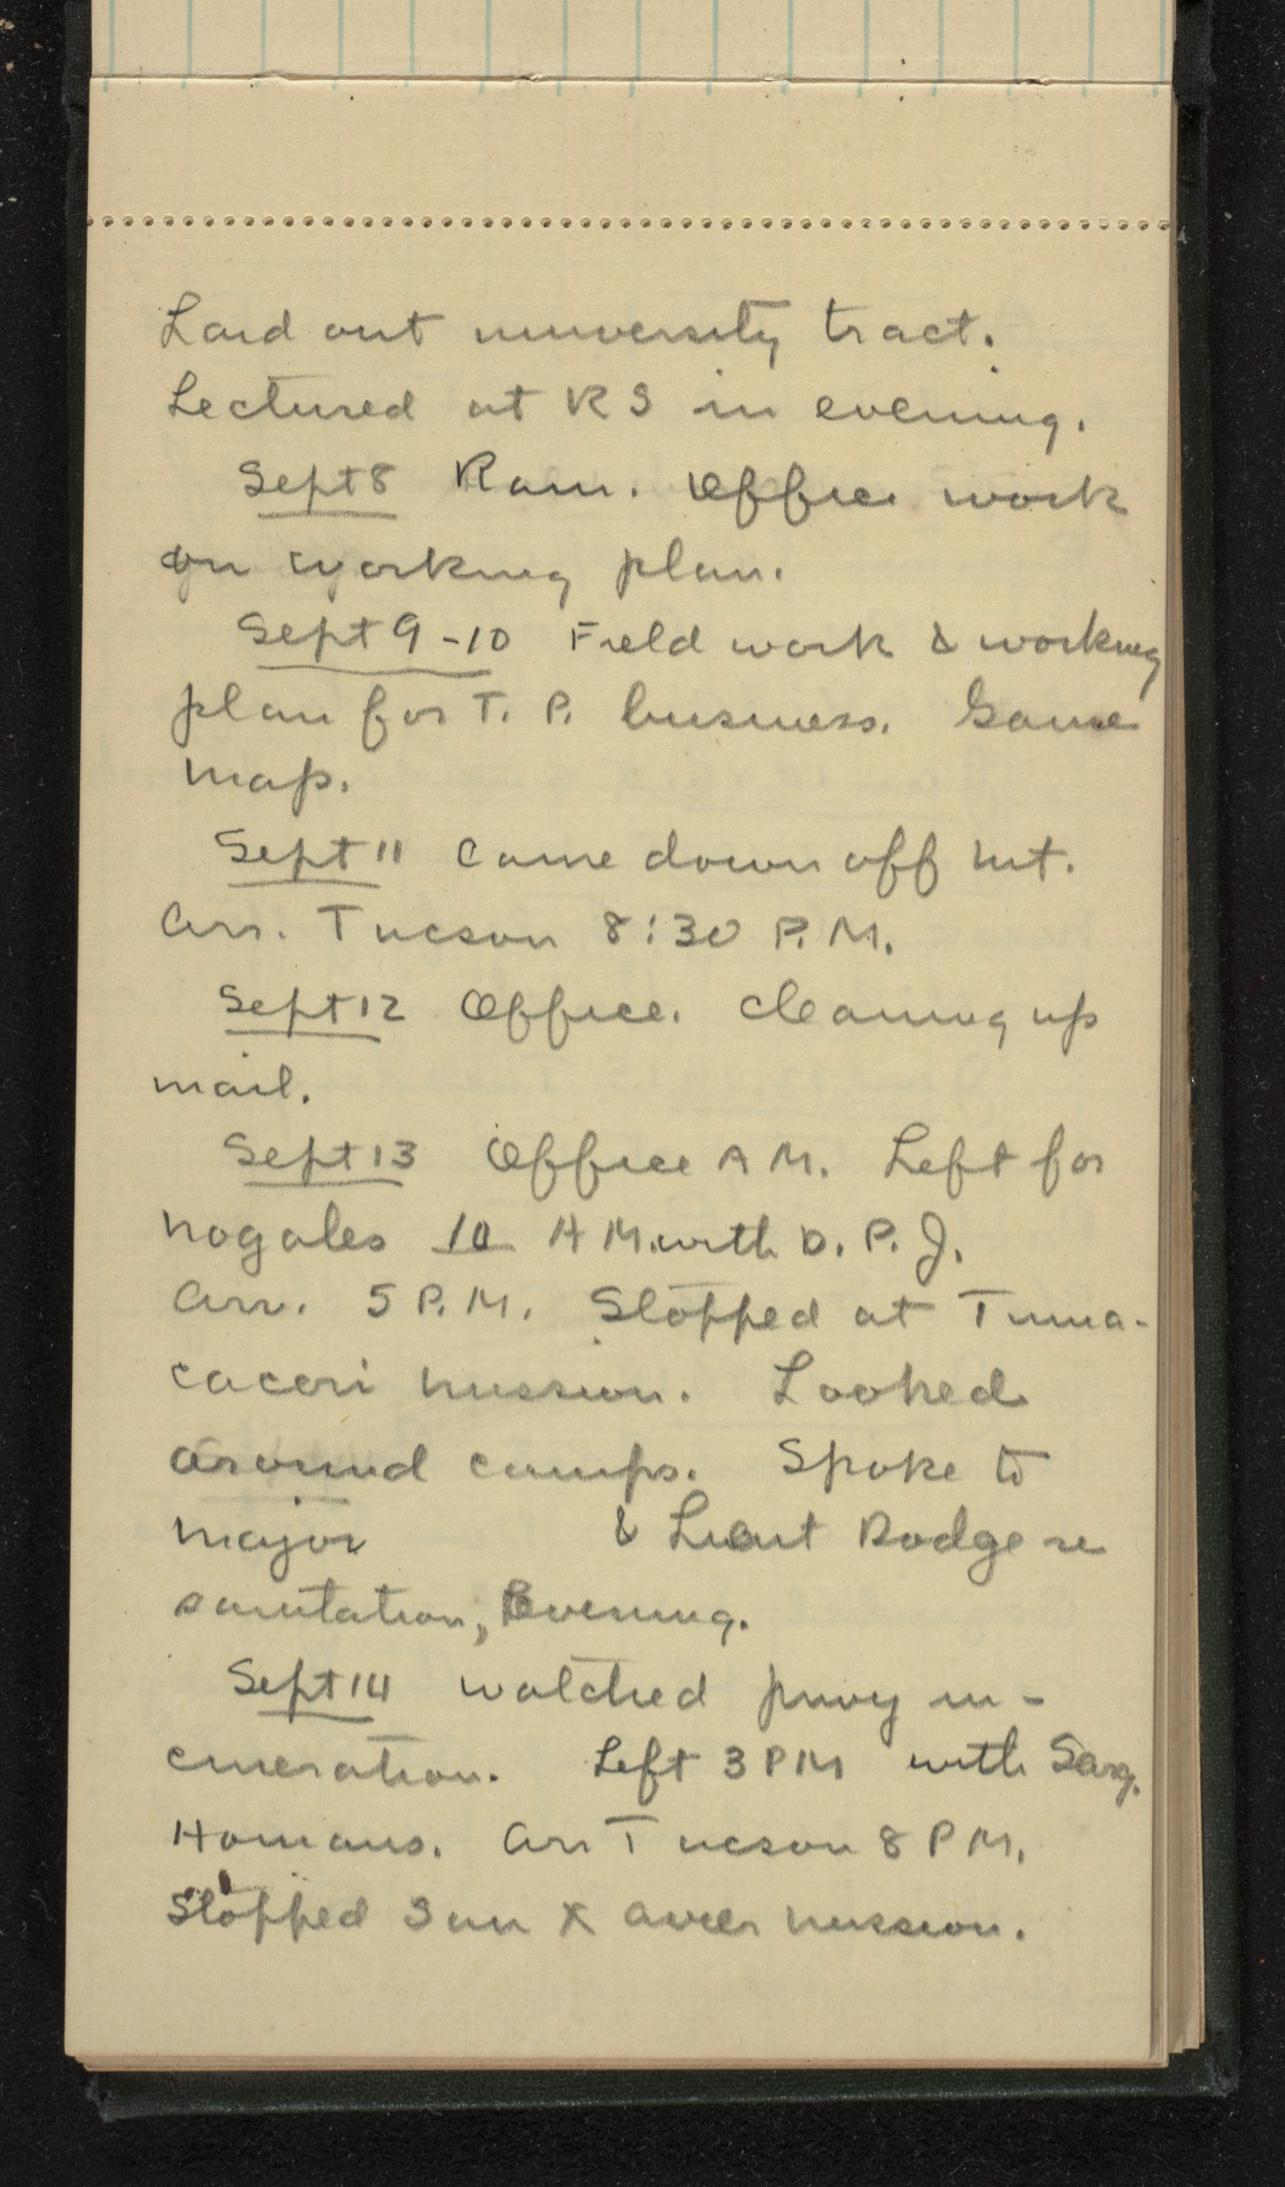 Laid out university tract.
Lectured at RS in evening.
Sept 8 Rain. Office work
on working plan.
Sept 9-10 Field work & working
plan for T. P. business. Game
map.
Sept 11 Came down off Mt.
Arr. Tucson 8:30 P.M.
Sept 12 Office. Cleaning up
mail.
Sept 13 Office A M. Left for
Nogales 10 A M. with D. P. J.
Arr. 5 P.M. Stopped at Tuma-
cacori Mission. Looked
around camps. Spoke to
Major & Lieut Dodge re
sanitation, Evening.
Sept 14 Watched privy in-
cineration. Left 3 PM with
Homans. Arr Tucson 8 P M.
Stopped San Xavier Mission.